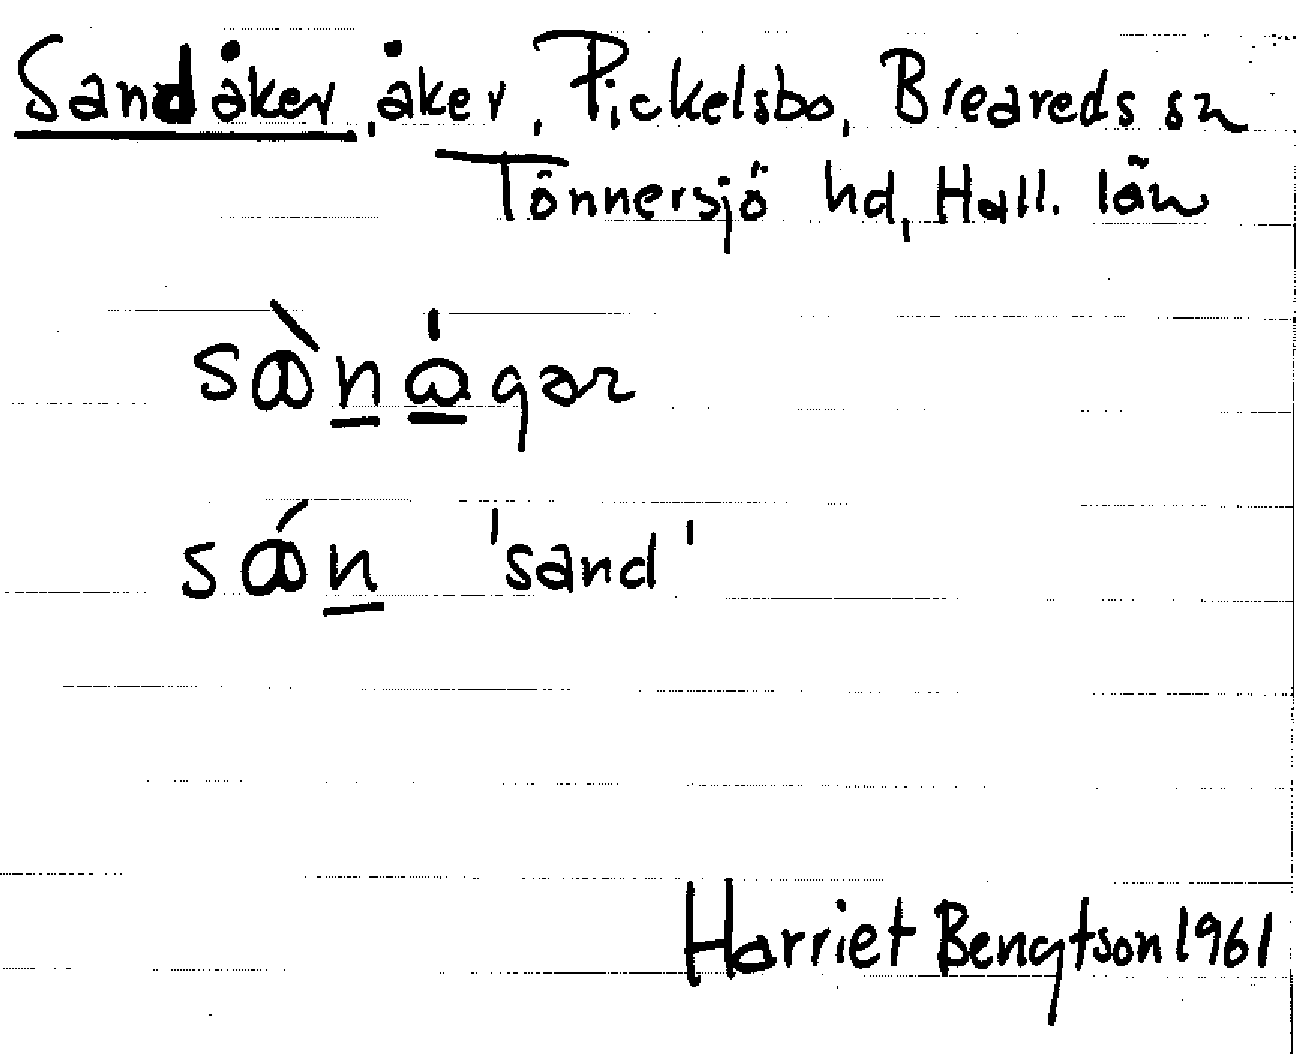 Sandåker, åker, Pickelsbo, Breareds sn
Tönnersjö hd, Hall. län
sànågər
sán 'sand'
Harriet Bengtson 1961